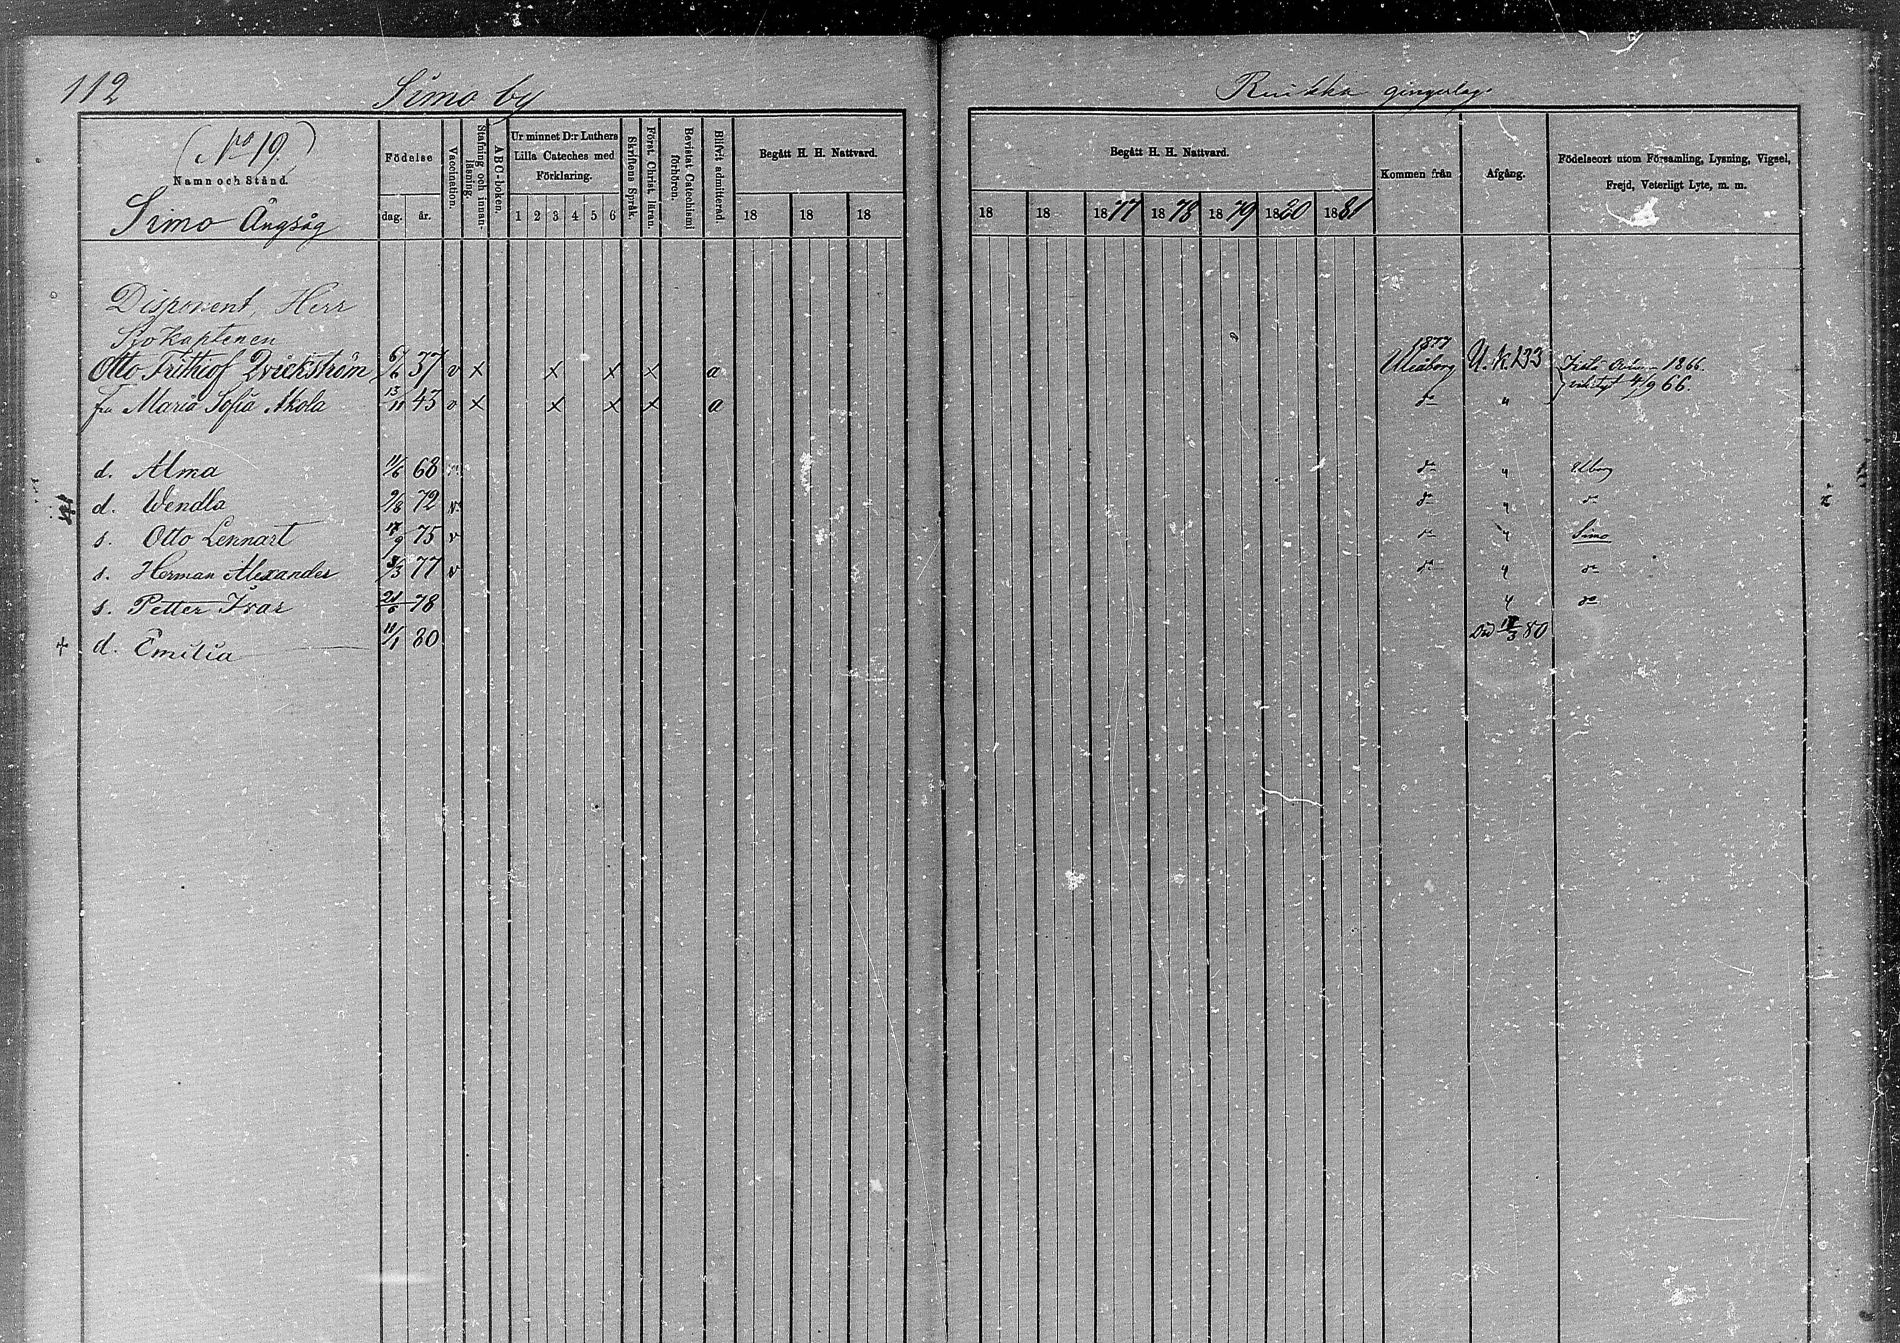 112
Simo by
(No 19.)
Namn och Stånd.
Simo Ångsåg
Födelse
dag. år.
Vaccination.
Stafning och innan-läsning.
ABC-boken.
Ur minnet D:r Luthers
Lilla Cateches med
Förklaring.
1 2 3 4 5 6
Skriftens Språk.
Först. Christ. läran.
Bevistat Catechismi förhören.
Blifvit admitterad
Begått H. H. Nattvard.
18 18 18
Disponent, Herr
Sjökaptenen
Otto Frithiof Qvickström 6/6 37 v x x x x a
fru Maria Sofia Akola 13/11 43 v x x x x a
d. Alma 11/6 68
d. Wendla 9/8 72 v
s. Otto Lennart 17/9 75 v
s. Herman Alexander 3/3 77 v
s. Petter Ivar 21/6 78
+ d. Emilia 11/1 80
Ruikka gingerlag.
Begått H. H. Nattvard.
18 18 1877 1878 1879 1880 1881
Kommen från
Afgång.
Födelseort utom Församling, Lysning, Vigsel,
Frejd, Veterligt Lyte, m. m.
1877
Uleåborg U. k. 133 1866.
do " 4/9 66.
do " Ulborg
do " do
do " Simo
do " do
" do
Död 17/3 80